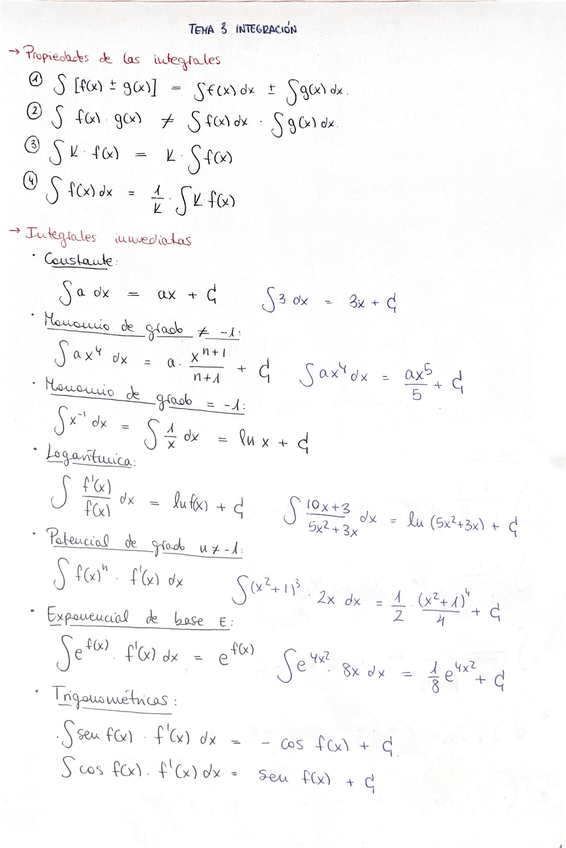 TEMA 3 INTEGRACIÓN
→ Propiedades de las integrales
① ∫ [f(x) ± g(x)] = ∫f(x) dx ± ∫g(x) dx.
② ∫ f(x) · g(x) ≠ ∫ f(x) dx · ∫g(x) dx.
③ ∫ K · f(x) = K · ∫ f(x)
④ ∫ f(x) dx = 1/K · ∫ K f(x)
→ Integrales inmediatas
· Constante:
∫ a dx = ax + C ∫ 3 dx = 3x + C
· Monomio de grado ≠ -1:
∫ ax⁴ dx = a · xⁿ⁺¹/n+1 + C ∫ ax⁴ dx = ax⁵/5 + C
· Monomio de grado = -1:
∫ x⁻¹ dx = ∫ 1/x dx = ln x + C
· Logarítmica:
∫ f'(x)/f(x) dx = ln f(x) + C ∫ 10x+3/5x²+3x dx = ln (5x²+3x) + C
· Potencial de grado n ≠ -1:
∫ f(x)ⁿ · f'(x) dx ∫(x²+1)³ · 2x dx = 1/2 · (x²+1)⁴/4 + C
· Exponencial de base E:
∫ e^f(x) · f'(x) dx = e^f(x) ∫ e^4x² · 8x dx = 1/8 e^4x² + C
· Trigonométricas:
· ∫ sen f(x) · f'(x) dx = - cos f(x) + C
∫ cos f(x) · f'(x) dx = sen f(x) + C